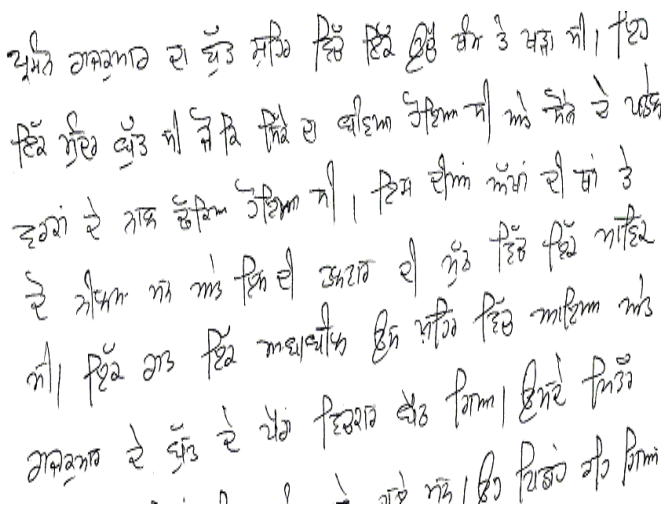 ਪ੍ਰਸੰਨ ਰਾਜਕੁਮਾਰ ਦਾ ਬੁੱਤ ਸ਼ਹਿਰ ਵਿੱਚ ਇੱਕ ਉੱਚੇ ਥੰਮ ਤੇ ਖੜਾ ਸੀ। ਇਹ
ਇੱਕ ਸੁੰਦਰ ਬੁੱਤ ਸੀ ਜੋ ਕਿ ਸਿੱਕੇ ਦਾ ਬਣਿਆ ਹੋਇਆ ਸੀ ਅਤੇ ਸੋਨੇ ਦੇ ਪੱਤਰ
ਵਰਕਾਂ ਦੇ ਨਾਲ ਢੱਕਿਆ ਹੋਇਆ ਸੀ। ਇਸ ਦੀਆਂ ਅੱਖਾਂ ਦੀ ਥਾਂ ਤੇ
ਦੋ ਨੀਲਮ ਸਨ ਅਤੇ ਇਸ ਦੀ ਤਲਵਾਰ ਦੀ ਮੁੱਠ ਵਿੱਚ ਇੱਕ ਮਾਣਿਕ
ਸੀ। ਇੱਕ ਰਾਤ ਇੱਕ ਅਬਾਬੀਲ ਉਸ ਸ਼ਹਿਰ ਵਿੱਚ ਆਇਆ ਅਤੇ
ਰਾਜਕੁਮਾਰ ਦੇ ਬੁੱਤ ਦੇ ਪੈਰਾਂ ਵਿਚਕਾਰ ਬੈਠ ਗਿਆ। ਉਸਦੇ ਮਿੱਤਰ
ਸਨ। ਉਹ ਪਿਛਾਂਹ ਰਹਿ ਗਿਆ